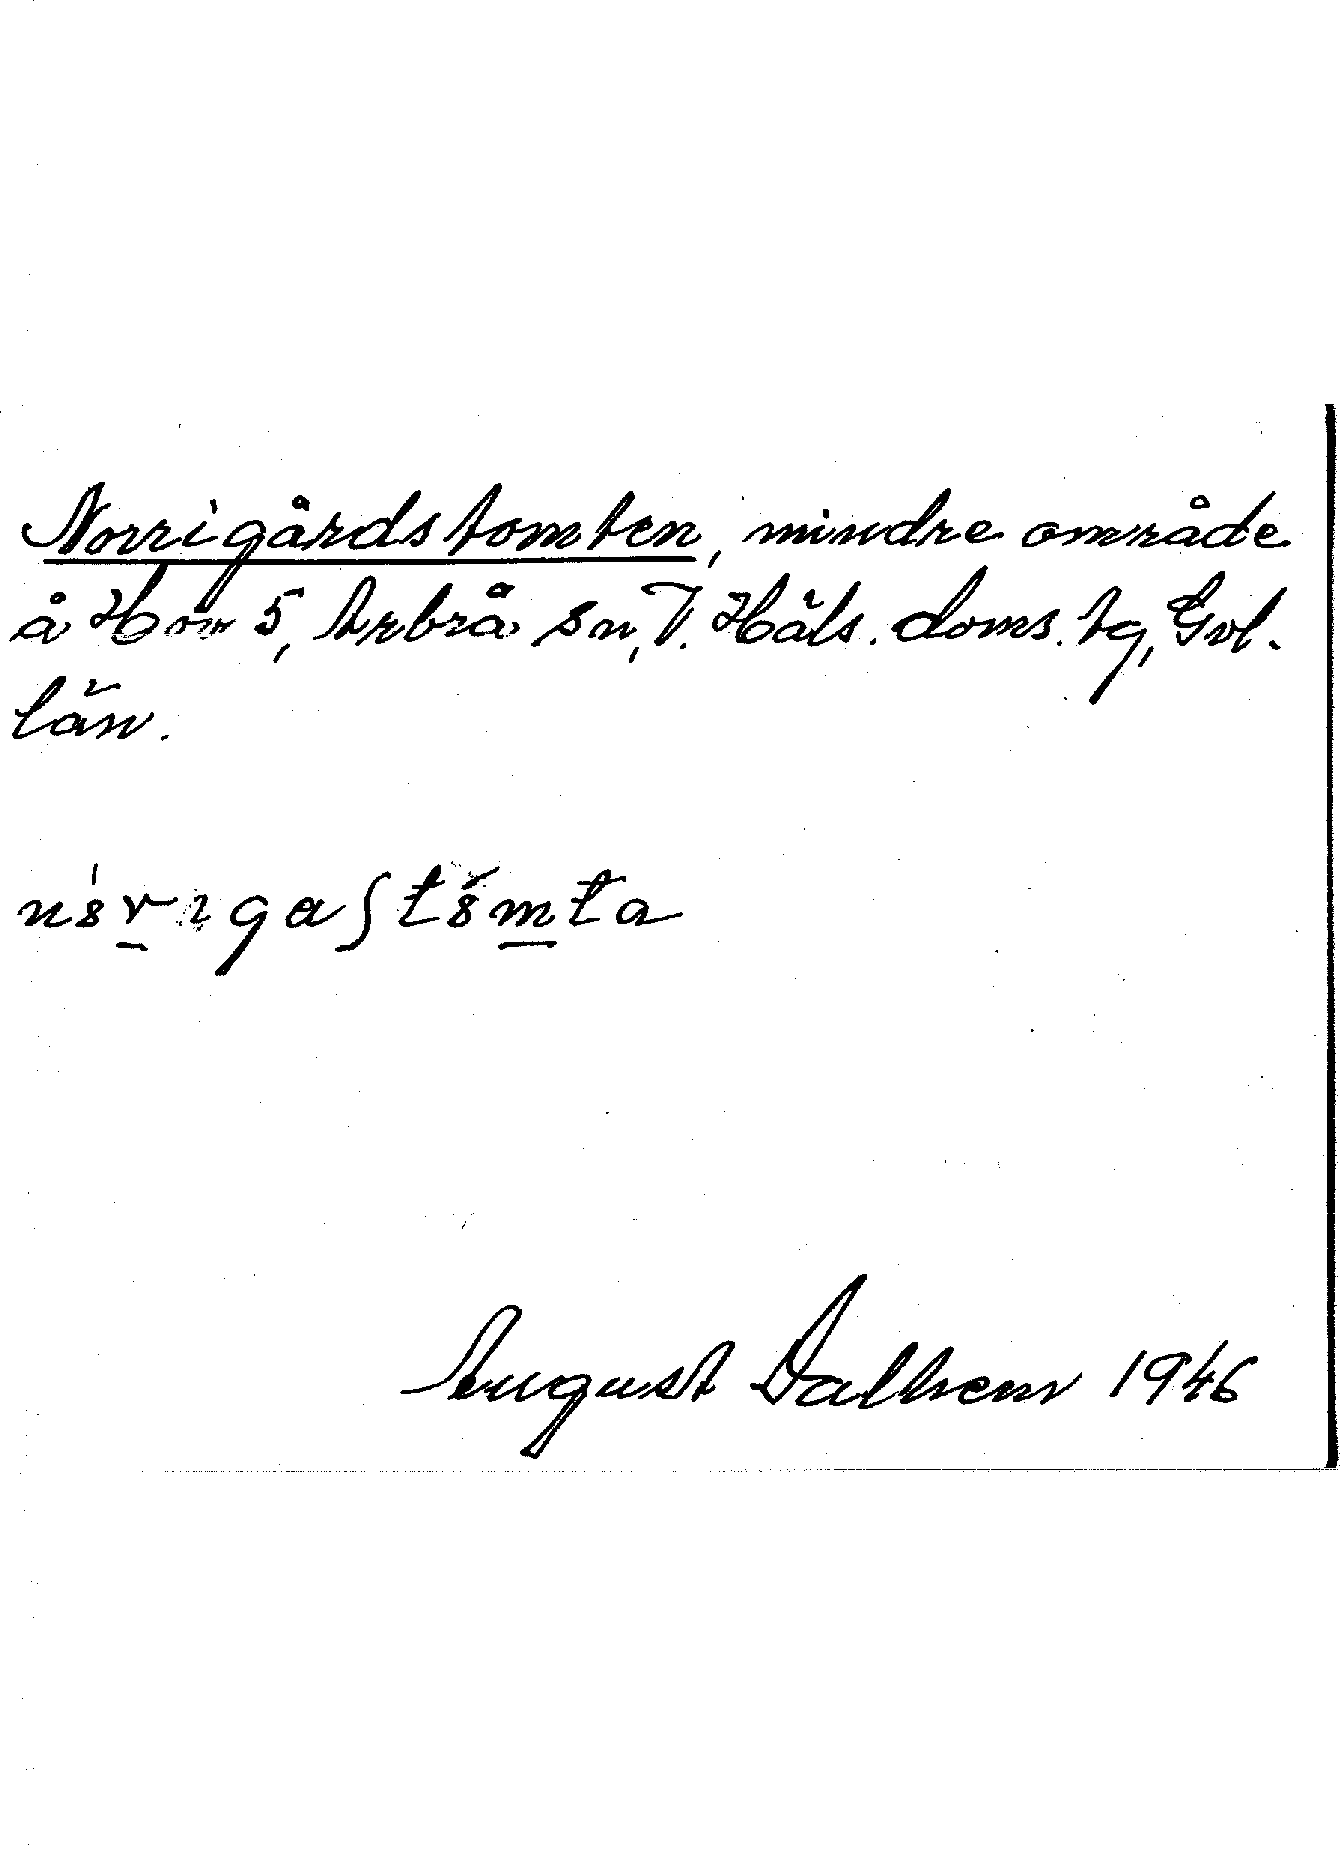 Norrigårdstomten, mindre område
å Hov 5, Arbrå sn, V. Häls. doms. tg, Gvl.
län.
August Dalhem 1946